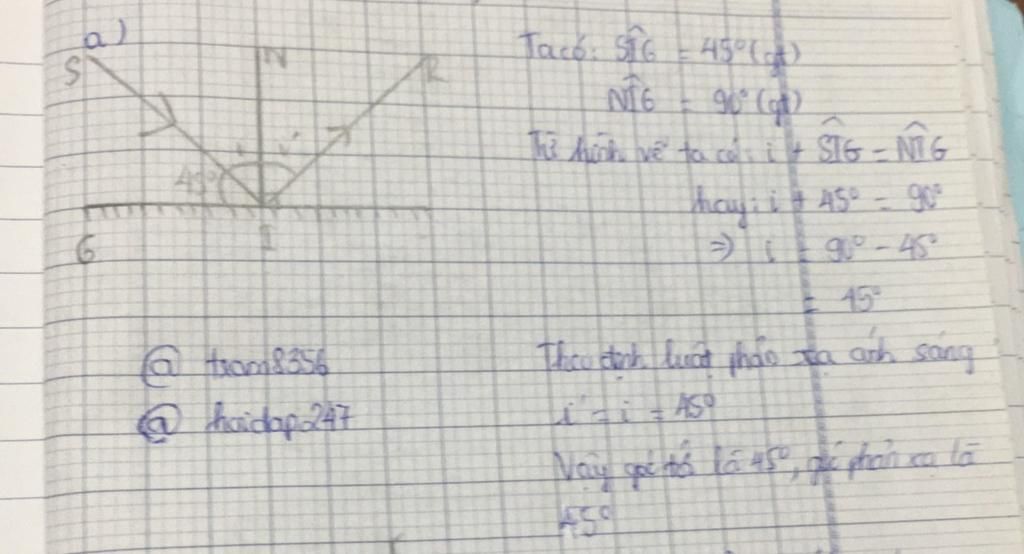 a)
S
N
R
i
i'
45°
G
I
Ta có: SÎG = 45° (gt)
NÎG = 90° (gt)
Từ hình vẽ ta có: i + SÎG = NÎG
hay: i + 45° = 90°
=> i = 90° - 45°
= 45°
Theo định luật phản xạ ánh sáng
i' = i = 45°
Vậy góc tới là 45°, góc phản xạ là
45°
@ tram8356
@ hoidap247